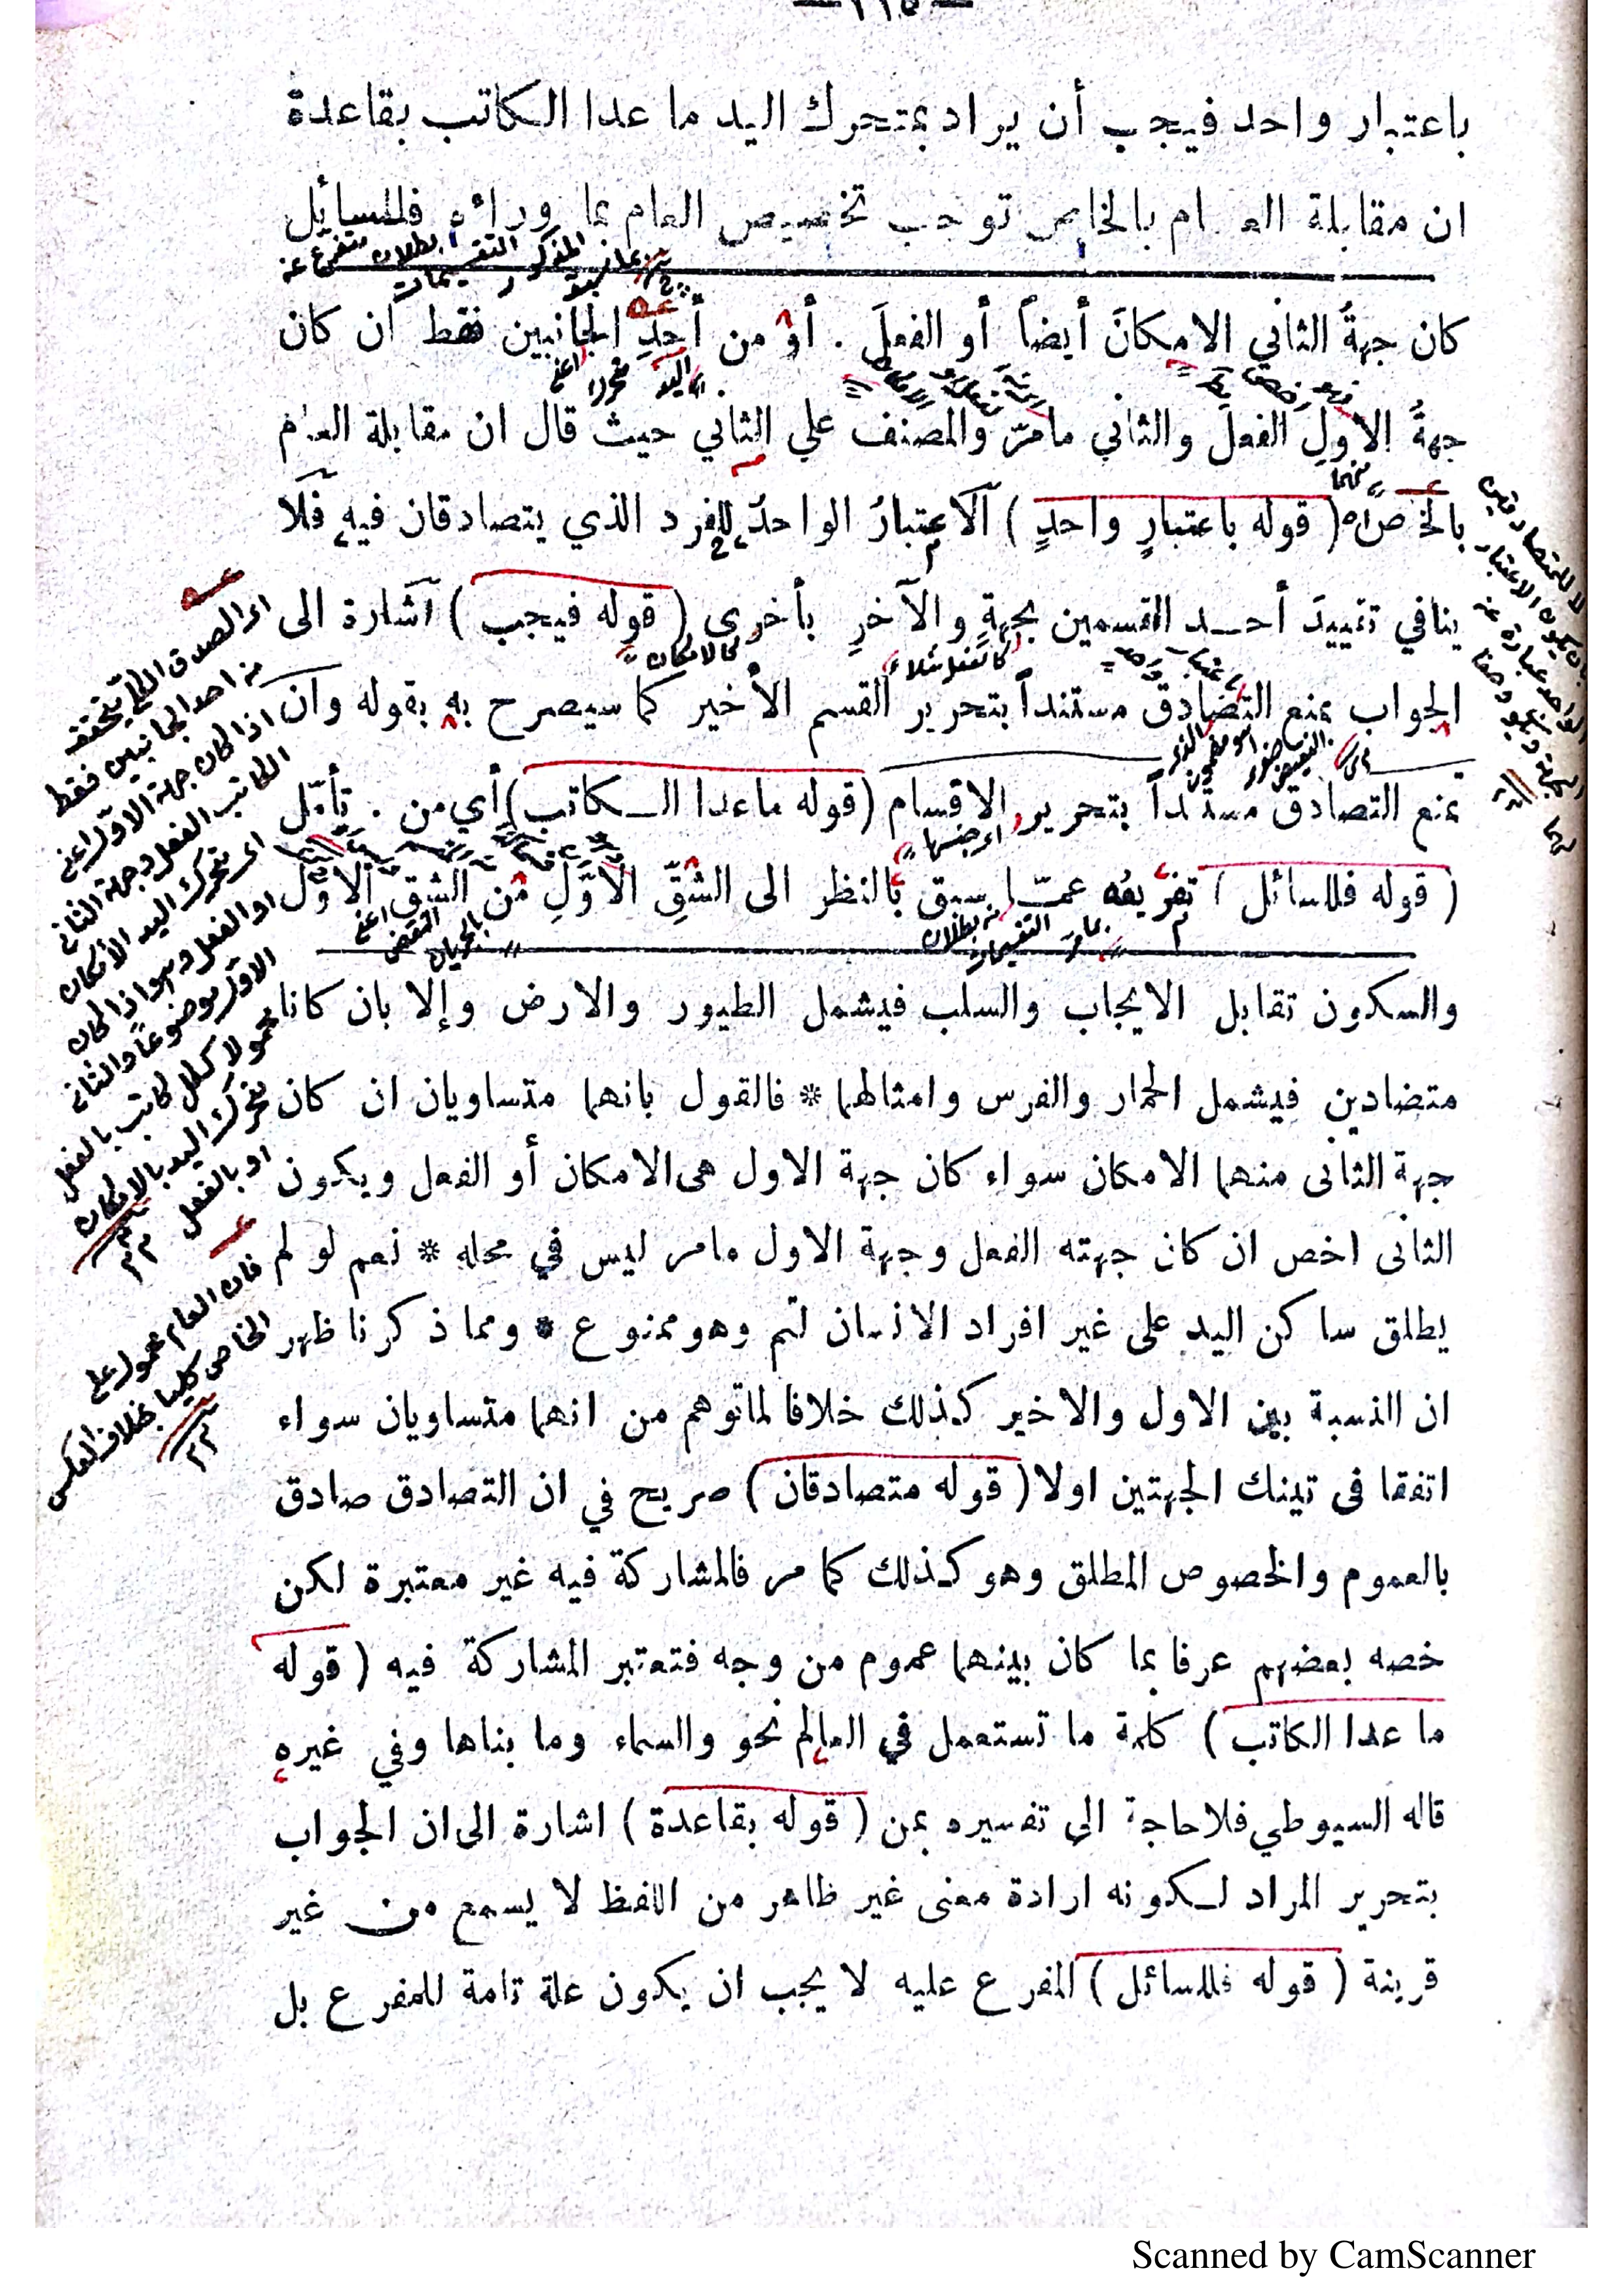 — ١١٥ —
باعتبار واحد فيجب أن يراد بمتحرك اليد ما عدا الكاتب بقاعدة
ان مقابلة العام بالخاص توجب تخصيص العام بما وراءه فللسائل
كان جهةُ الثاني الامكانَ أيضاً أو الفعلَ . أو من أحدِ الجانبين فقط ان كان
جهةُ الاولِ الفعلَ والثاني مامرّ والمصنف علي الثاني حيث قال ان مقابلة العام
بالخاص اه (قوله باعتبارٍ واحدٍ) الاعتبارُ الواحدُ للفرد الذي يتصادقان فيه فلا
ينافي تقييدَ أحد القسمين بجهةٍ والآخرِ بأخرى (قوله فيجب) اشارة الى
الجواب بمنع التصادق مستنداً بتحرير القسم الأخير كما سيصرح به بقوله وان
تمنع التصادق مستنداً بتحرير الاقسام (قوله ماعدا الكاتب) أي من . تأمّل
(قوله فللسائل) تفريعه عمّا سبق بالنظر الى الشقِّ الأوّلِ من الشق الاوّل
والسكون تقابل الايجاب والسلب فيشمل الطيور والارض وإلا بان كانا
متضادين فيشمل الحمار والفرس وامثالهما * فالقول بانهما متساويان ان كان
جهة الثانى منهما الامكان سواء كان جهة الاول هى الامكان أو الفعل ويكون
الثانى اخص ان كان جهته الفعل وجهة الاول مامر ليس في محله * نعم لو لم
يطلق ساكن اليد على غير افراد الانسان لتم وهو ممنوع * ومما ذكرنا ظهر
ان النسبة بين الاول والاخير كذلك خلافا لماتوهم من انهما متساويان سواء
اتفقا فى تينك الجهتين اولا (قوله متصادقان) صريح في ان التصادق صادق
بالعموم والخصوص المطلق وهو كذلك كما مر فالمشاركة فيه غير معتبرة لكن
خصه بعضهم عرفا بما كان بينهما عموم من وجه فتعتبر المشاركة فيه (قوله
ما عدا الكاتب) كلمة ما تستعمل في العالم نحو والسماء وما بناها وفي غيره
قاله السيوطي فلاحاجة الى تفسيره بمن (قوله بقاعدة) اشارة الى ان الجواب
بتحرير المراد لكونه ارادة معنى غير ظاهر من اللفظ لا يسمع من غير
قرينة (قوله فللسائل) المفرع عليه لا يجب ان يكون علة تامة للمفرع بل
اى الصدق الكلى يتحقق
من احد الجانبين فقط
اذا كان جهة الاول اعنى
الكاتب الفعل وجهة الثانى
اى تحرك اليد الامكان
او الفعل وهو اذا كان
الاول موضوعا والثانى
محمولا ككل كاتب بالفعل
متحرك اليد بالامكان
او بالفعل
فان العام محمول على
الخاص كليا بخلاف العكس
كالامكان
كالفعل مثلا
Scanned by CamScanner